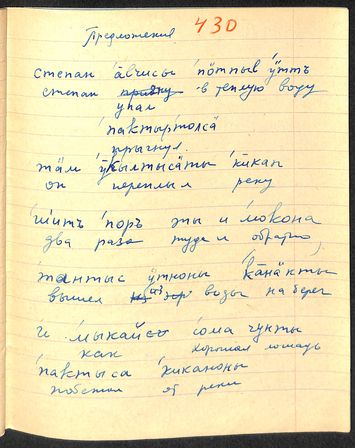 Предложения 430
степан 'ӓвчисы 'пӧтпыв 'ӱттъ
степан в теплую воду
упал
'пактыртолсӓ
прыгнул.
тӓм 'ӱкылтысӓты 'кикан
он переплыл реку
'шитъ 'поръ ты и 'мокона
два раза туда и обратно,
'тантыс ӱтконы 'кӓнӓкты
вышел из воды на берег
и мыкайсо сома чунты
как хорошая лошадь
'пактыса 'киканоны
побежал от реки